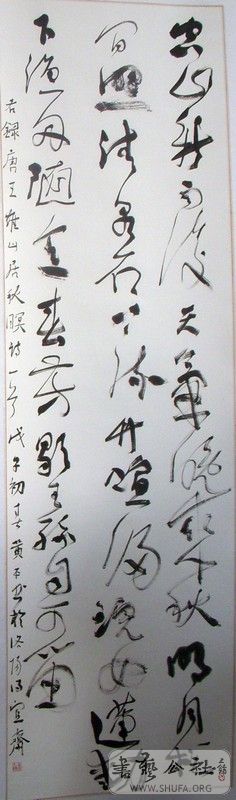 空山新雨後天氣晚來秋明月松
間照清泉石上流竹喧歸浣女蓮動
下漁舟隨意春芳歇王孫自可留
右録唐王維山居秋暝詩一首戊子初春黄石书於洛陽 宜齋
書藝公社
WWW.SHUFA.ORG